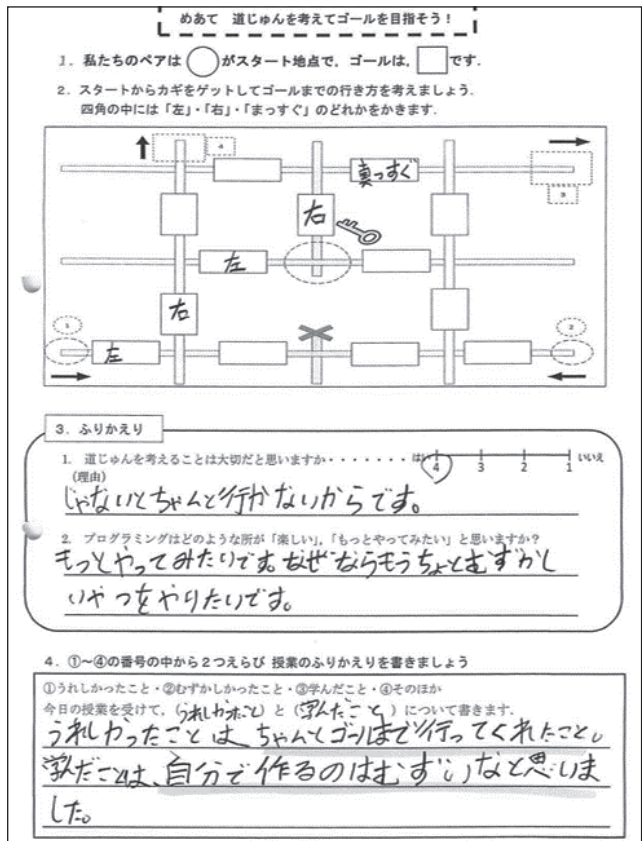 めあて 道じゅんを考えてゴールを目指そう！
1. 私たちのペアは◯がスタート地点で，ゴールは，□です．
2. スタートからカギをゲットしてゴールまでの行き方を考えましょう．
四角の中には「左」・「右」・「まっすぐ」のどれかをかきます．
4
真っすぐ
3
右
左
右
1
2
左
3. ふりかえり
1. 道じゅんを考えることは大切だと思いますか・・・・・・・はい 4 3 2 1 いいえ
(理由)
じゃないとちゃんと行かないからです。
2. プログラミングはどのような所が「楽しい」，「もっとやってみたい」と思いますか？
もっとやってみたいです。なぜならもうちょとむずかし
いやつをやりたいです。
4. ①～④の番号の中から2つえらび 授業のふりかえりを書きましょう
①うれしかったこと・②むずかしかったこと・③学んだこと・④そのほか
今日の授業を受けて，(うれしかったこと) と (学んだこと) について書きます．
うれしかったことは、ちゃんとゴールまで行ってくれたこと。
学んだことは、自分で作るのはむずいなと思いま
した。